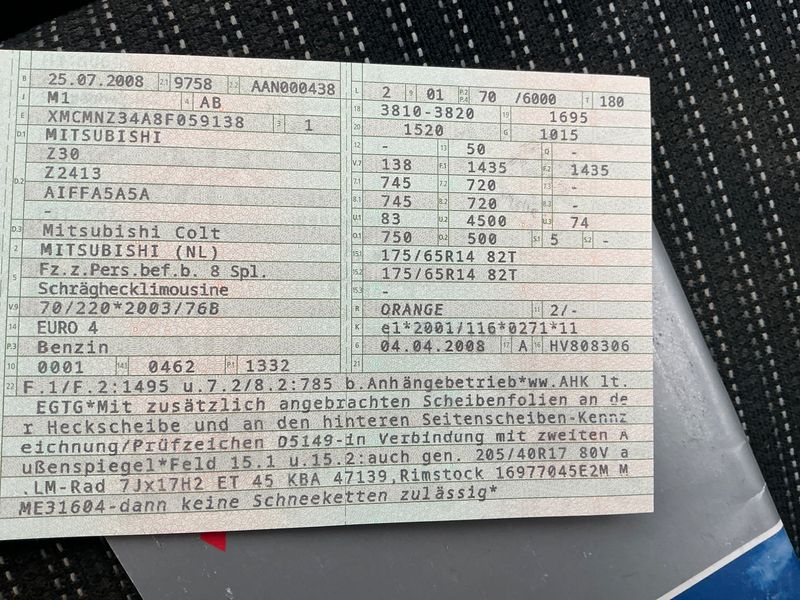 B 25.07.2008 2.1 9758 2.2 AAN000438
J M1 4 AB
E XMCMNZ34A8F059138 3 1
D.1 MITSUBISHI
Z30
D.2 Z2413
AIFFA5A5A
-
D.3 Mitsubishi Colt
2 MITSUBISHI (NL)
5 Fz.z.Pers.bef.b. 8 Spl.
Schräghecklimousine
V.9 70/220*2003/76B
14 EURO 4
P.3 Benzin
10 0001 14.1 0462 P.1 1332
L 2 9 01 P.2 P.4 70 /6000 T 180
18 3810-3820 19 1695
20 1520 G 1015
12 - 13 50 Q -
V.7 138 F.1 1435 F.2 1435
7.1 745 7.2 720 7.3 -
8.1 745 8.2 720 8.3 -
U.1 83 U.2 4500 U.3 74
O.1 750 O.2 500 S.1 5 S.2 -
15.1 175/65R14 82T
15.2 175/65R14 82T
15.3 -
R ORANGE 11 2/-
K e1*2001/116*0271*11
6 04.04.2008 17 A 16 HV808306
21
22 F.1/F.2:1495 u.7.2/8.2:785 b.Anhängebetrieb*ww.AHK lt.
EGTG*Mit zusätzlich angebrachten Scheibenfolien an de
r Heckscheibe und an den hinteren Seitenscheiben-Kennz
eichnung/Prüfzeichen D5149-in Verbindung mit zweiten A
ußenspiegel*Feld 15.1 u.15.2:auch gen. 205/40R17 80V a
.LM-Rad 7Jx17H2 ET 45 KBA 47139,Rimstock 16977045E2M M
ME31604-dann keine Schneeketten zulässig*